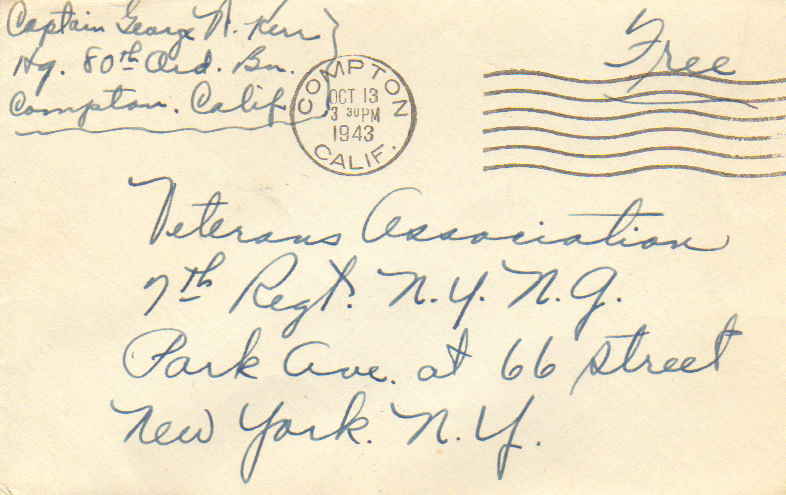 Captain George N. Kerr
Hq. 80th Ord. Bn.
Compton. Calif
COMPTON
OCT 13
3 30 PM
1943
CALIF.
Free
Veterans Association
7th Regt. N.Y. N.G.
Park Ave. at 66 Street
New York. N.Y.